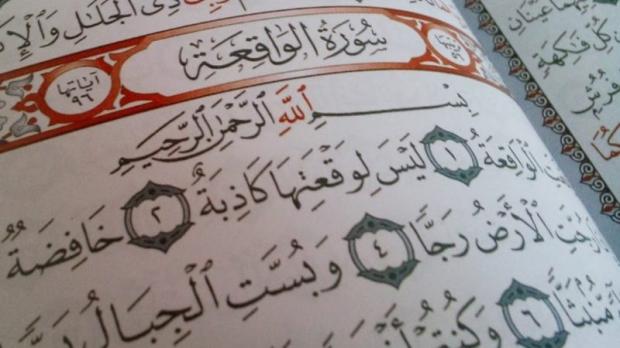 ذِى الْجَلَلِ وَالْإِكْ
سُورَةُ الْوَاقِعَةِ
آيَاتُهَا ٩٦
بِسْمِ اللَّهِ الرَّحْمَٰنِ الرَّحِيمِ
الْوَاقِعَةُ ١ لَيْسَ لِوَقْعَتِهَا كَاذِبَةٌ ٢ خَافِضَةٌ
رُجَّتِ الْأَرْضُ رَجًّا ٤ وَبُسَّتِ الْجِبَالُ
مُّنْبَثًّا ٦ وَكُنتُمْ
فَٰكِهَةٍ